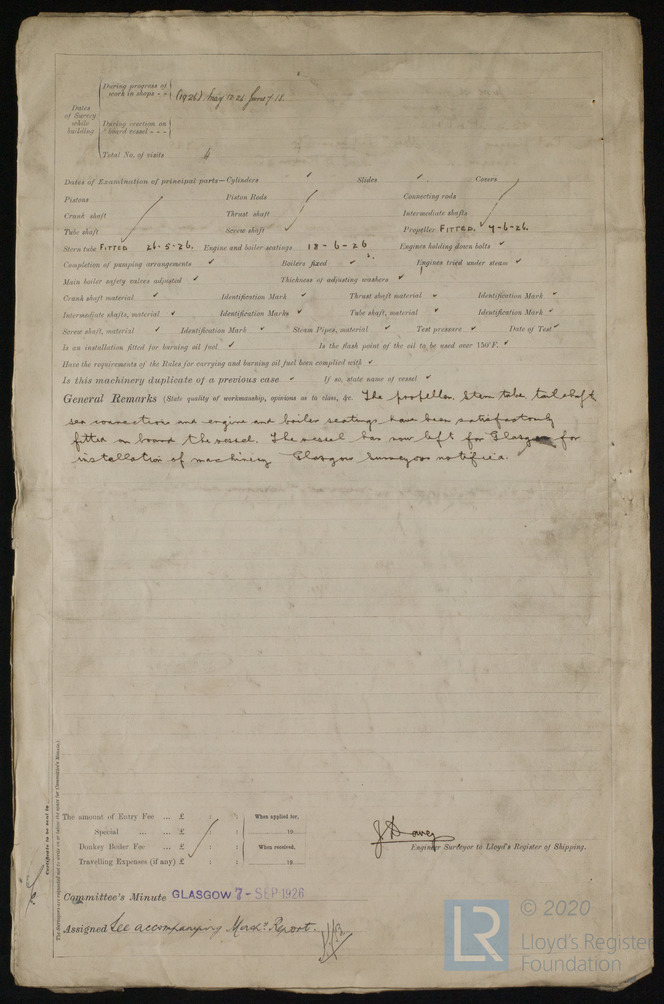 During progress of work in shops - -
(1926) May 12. 26 June 7. 18.
Dates of Survey while building
During erection on board vessel - - -
Total No. of visits 4
Dates of Examination of principal parts—Cylinders ✓ Slides ✓ Covers
Pistons Piston Rods Connecting rods
Crank shaft Thrust shaft Intermediate shafts
Tube shaft Screw shaft Propeller FITTED. 7-6-26.
Stern tube FITTED 26.5.26. Engine and boiler seatings 18-6-26 Engines holding down bolts ✓
Completion of pumping arrangements ✓ Boilers fixed ✓ Engines tried under steam ✓
Main boiler safety valves adjusted ✓ Thickness of adjusting washers ✓
Crank shaft material ✓ Identification Mark ✓ Thrust shaft material ✓ Identification Mark ✓
Intermediate shafts, material ✓ Identification Marks ✓ Tube shaft, material ✓ Identification Mark ✓
Screw shaft, material ✓ Identification Mark ✓ Steam Pipes, material ✓ Test pressure ✓ Date of Test ✓
Is an installation fitted for burning oil fuel ✓ Is the flash point of the oil to be used over 150°F. ✓
Have the requirements of the Rules for carrying and burning oil fuel been complied with ✓
Is this machinery duplicate of a previous case ✓ If so, state name of vessel ✓
General Remarks (State quality of workmanship, opinions as to class, &c. The propeller, stern tube, tailshaft
sea connections and engine and boiler seatings have been satisfactorily
fitted on board the vessel. The vessel has now left for Glasgow for
installation of machinery Glasgow Surveyors notified.
Certificate to be sent to
The Surveyors are requested not to write on or below the space for Committee's Minute.
The amount of Entry Fee ... £ : : When applied for,
Special ... ... £ : : 19
Donkey Boiler Fee ... £ : : When received,
Travelling Expenses (if any) £ : : 19
J Davey
Engineer Surveyor to Lloyd's Register of Shipping.
Committee's Minute GLASGOW 7-SEP 1926
Assigned See accompanying Mach'y Report.
LR © 2020
Lloyd's Register
Foundation